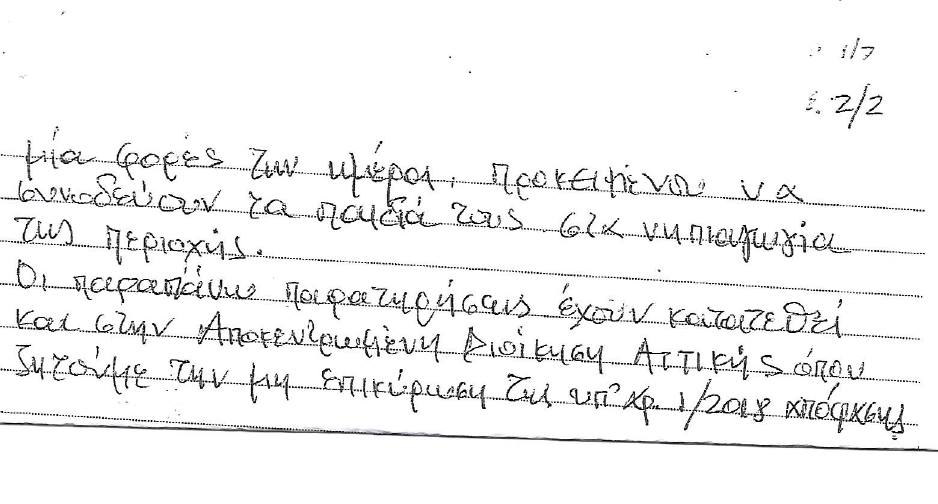 1/7
2/2
μία φορές την ημέρα, προκειμένου να
συνοδεύσουν τα παιδιά τους στα νηπιαγωγία
της περιοχής.
Οι παραπάνω παρατηρήσεις έχουν κατατεθεί
και στην Αποκεντρωμένη Διοίκηση Αττικής όπου
ζητούμε την μη επικύρωση της υπ' αρ. 1/2018 απόφασης